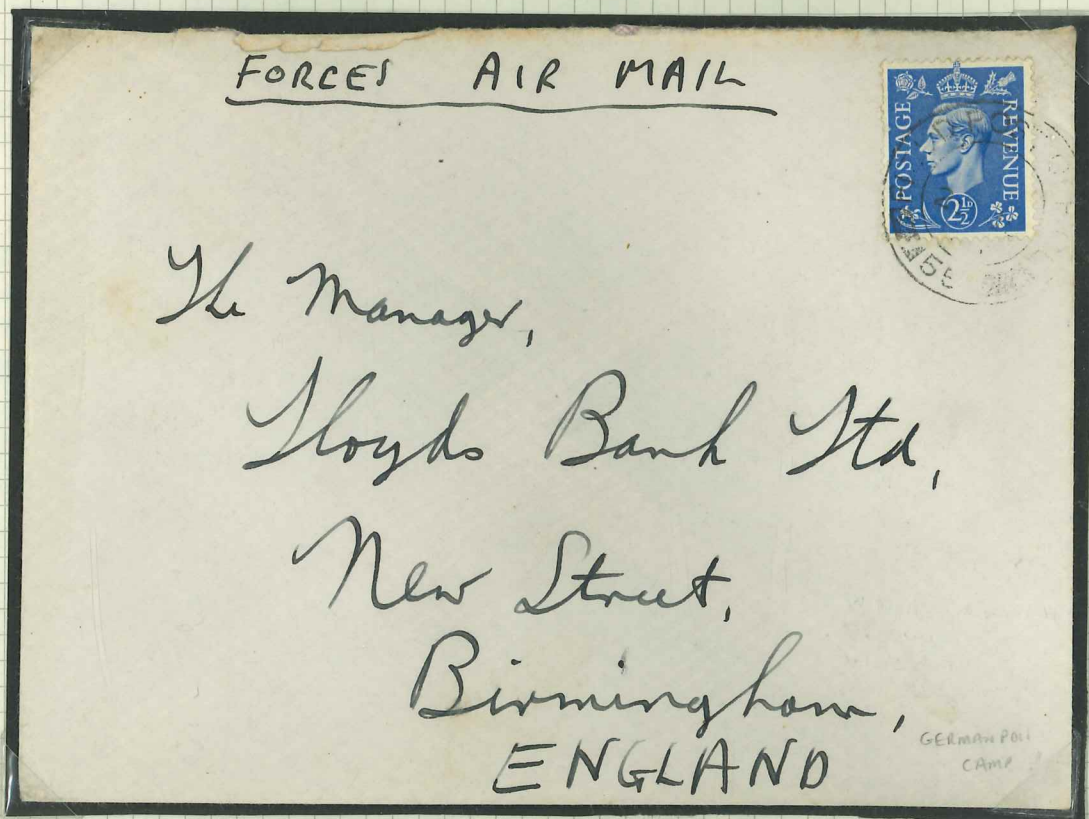 FORCES AIR MAIL
POSTAGE REVENUE
2½D
55
The Manager,
Lloyds Bank Ltd,
New Street,
Birmingham,
ENGLAND
GERMAN POW
CAMP